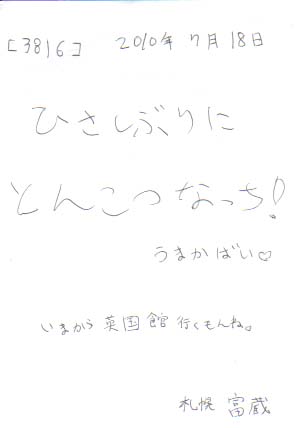 [3816] 2010年 7月18日
ひさしぶりに
とんこつなっち!
うまかばい♡
いまから 英国館 行くもんね。
札幌 富蔵